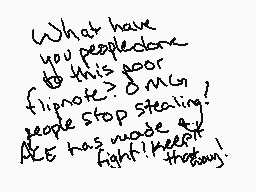 What have
you people done
to this poor
flipnote? OMG
people stop stealing!
ACE has made a
fight! Keep it
that way!